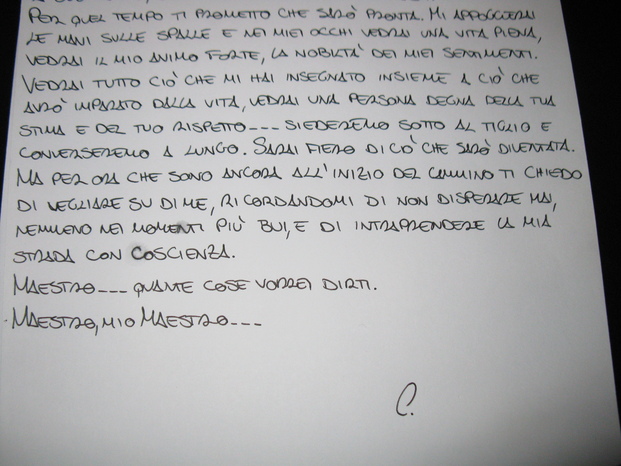 PER QUEL TEMPO TI PROMETTO CHE SARÒ PRONTA. MI APPOGGERAI
LE MANI SULLE SPALLE E NEI MIEI OCCHI VEDRAI UNA VITA PIENA,
VEDRAI IL MIO ANIMO FORTE, LA NOBILTÀ DEI MIEI SENTIMENTI.
VEDRAI TUTTO CIÒ CHE MI HAI INSEGNATO INSIEME A CIÒ CHE
AVRÒ IMPARATO DALLA VITA, VEDRAI UNA PERSONA DEGNA DELLA TUA
STIMA E DEL TUO RISPETTO... SIEDEREMO SOTTO AL TIGLIO E
CONVERSEREMO A LUNGO. SARAI FIERO DI CÒ CHE SARÒ DIVENTATA.
MA PER ORA CHE SONO ANCORA ALL'INIZIO DEL CAMMINO TI CHIEDO
DI VEGLIARE SU DI ME, RICORDANDOMI DI NON DISPERARE MAI,
NEMMENO NEI MOMENTI PIÙ BUI, E DI INTRAPRENDERE LA MIA
STRADA CON COSCIENZA.
MAESTRO... QUANTE COSE VORREI DIRTI.
MAESTRO, MIO MAESTRO...
C.